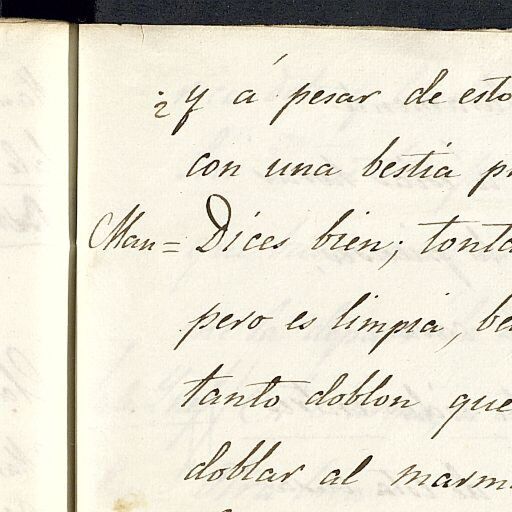 ¿y á pesar de esto
con una bestia
Man = Dices bien; tonta
pero es limpia,
tanto doblon que
doblar al